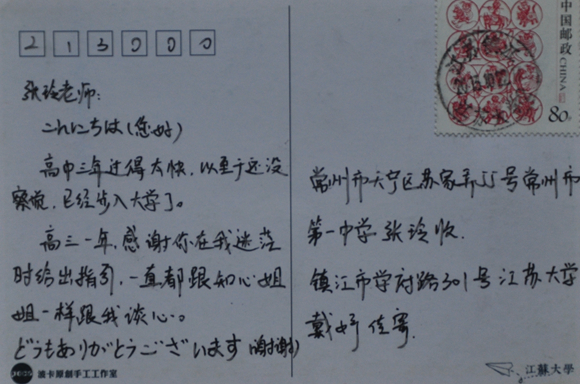 213000
张玲老师:
こんにちは(您好)
高中三年过得太快,以至于还没
察觉,已经步入大学了。
高三一年,感谢你在我迷茫
时给出指引,一直都跟知心姐
姐一样跟我谈心。
どうもありがとうございます(谢谢)
浪卡原創手工工作室
中国邮政
CHINA
80分
常州市天宁区苏家弄55号常州市
第一中学张玲收.
镇江市学府路301号江苏大学
戴妤佳寄.
江蘇大學